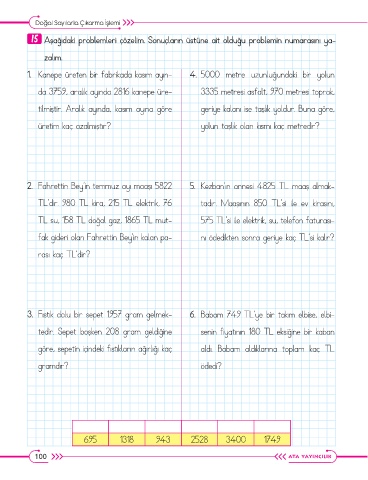 Doğal Sayılarla Çıkarma İşlemi
15 Aşağıdaki problemleri çözelim. Sonuçların üstüne ait olduğu problemin numarasını ya-
zalım.
1. Kanepe üreten bir fabrikada kasım ayın-
da 3759, aralık ayında 2816 kanepe üre-
tilmiştir. Aralık ayında, kasım ayına göre
üretim kaç azalmıştır?
4. 5000 metre uzunluğundaki bir yolun
3335 metresi asfalt, 970 metresi toprak,
geriye kalanı ise taşlık yoldur. Buna göre,
yolun taşlık olan kısmı kaç metredir?
2. Fahrettin Bey'in temmuz ayı maaşı 5822
TL'dir. 980 TL kira, 215 TL elektrik, 76
TL su, 158 TL doğal gaz, 1865 TL mut-
fak gideri olan Fahrettin Bey'in kalan pa-
rası kaç TL'dir?
5. Kezban'ın annesi 4825 TL maaş almak-
tadır. Maaşının 850 TL'si ile ev kirasını,
575 TL'si ile elektrik, su, telefon faturası-
nı ödedikten sonra geriye kaç TL'si kalır?
3. Fıstık dolu bir sepet 1957 gram gelmek-
tedir. Sepet boşken 208 gram geldiğine
göre, sepetin içindeki fıstıkların ağırlığı kaç
gramdır?
6. Babam 749 TL'ye bir takım elbise, elbi-
senin fiyatının 180 TL eksiğine bir kaban
aldı. Babam aldıklarına toplam kaç TL
ödedi?
695 1318 943 2528 3400 1749
100 ATA YAYINCILIK